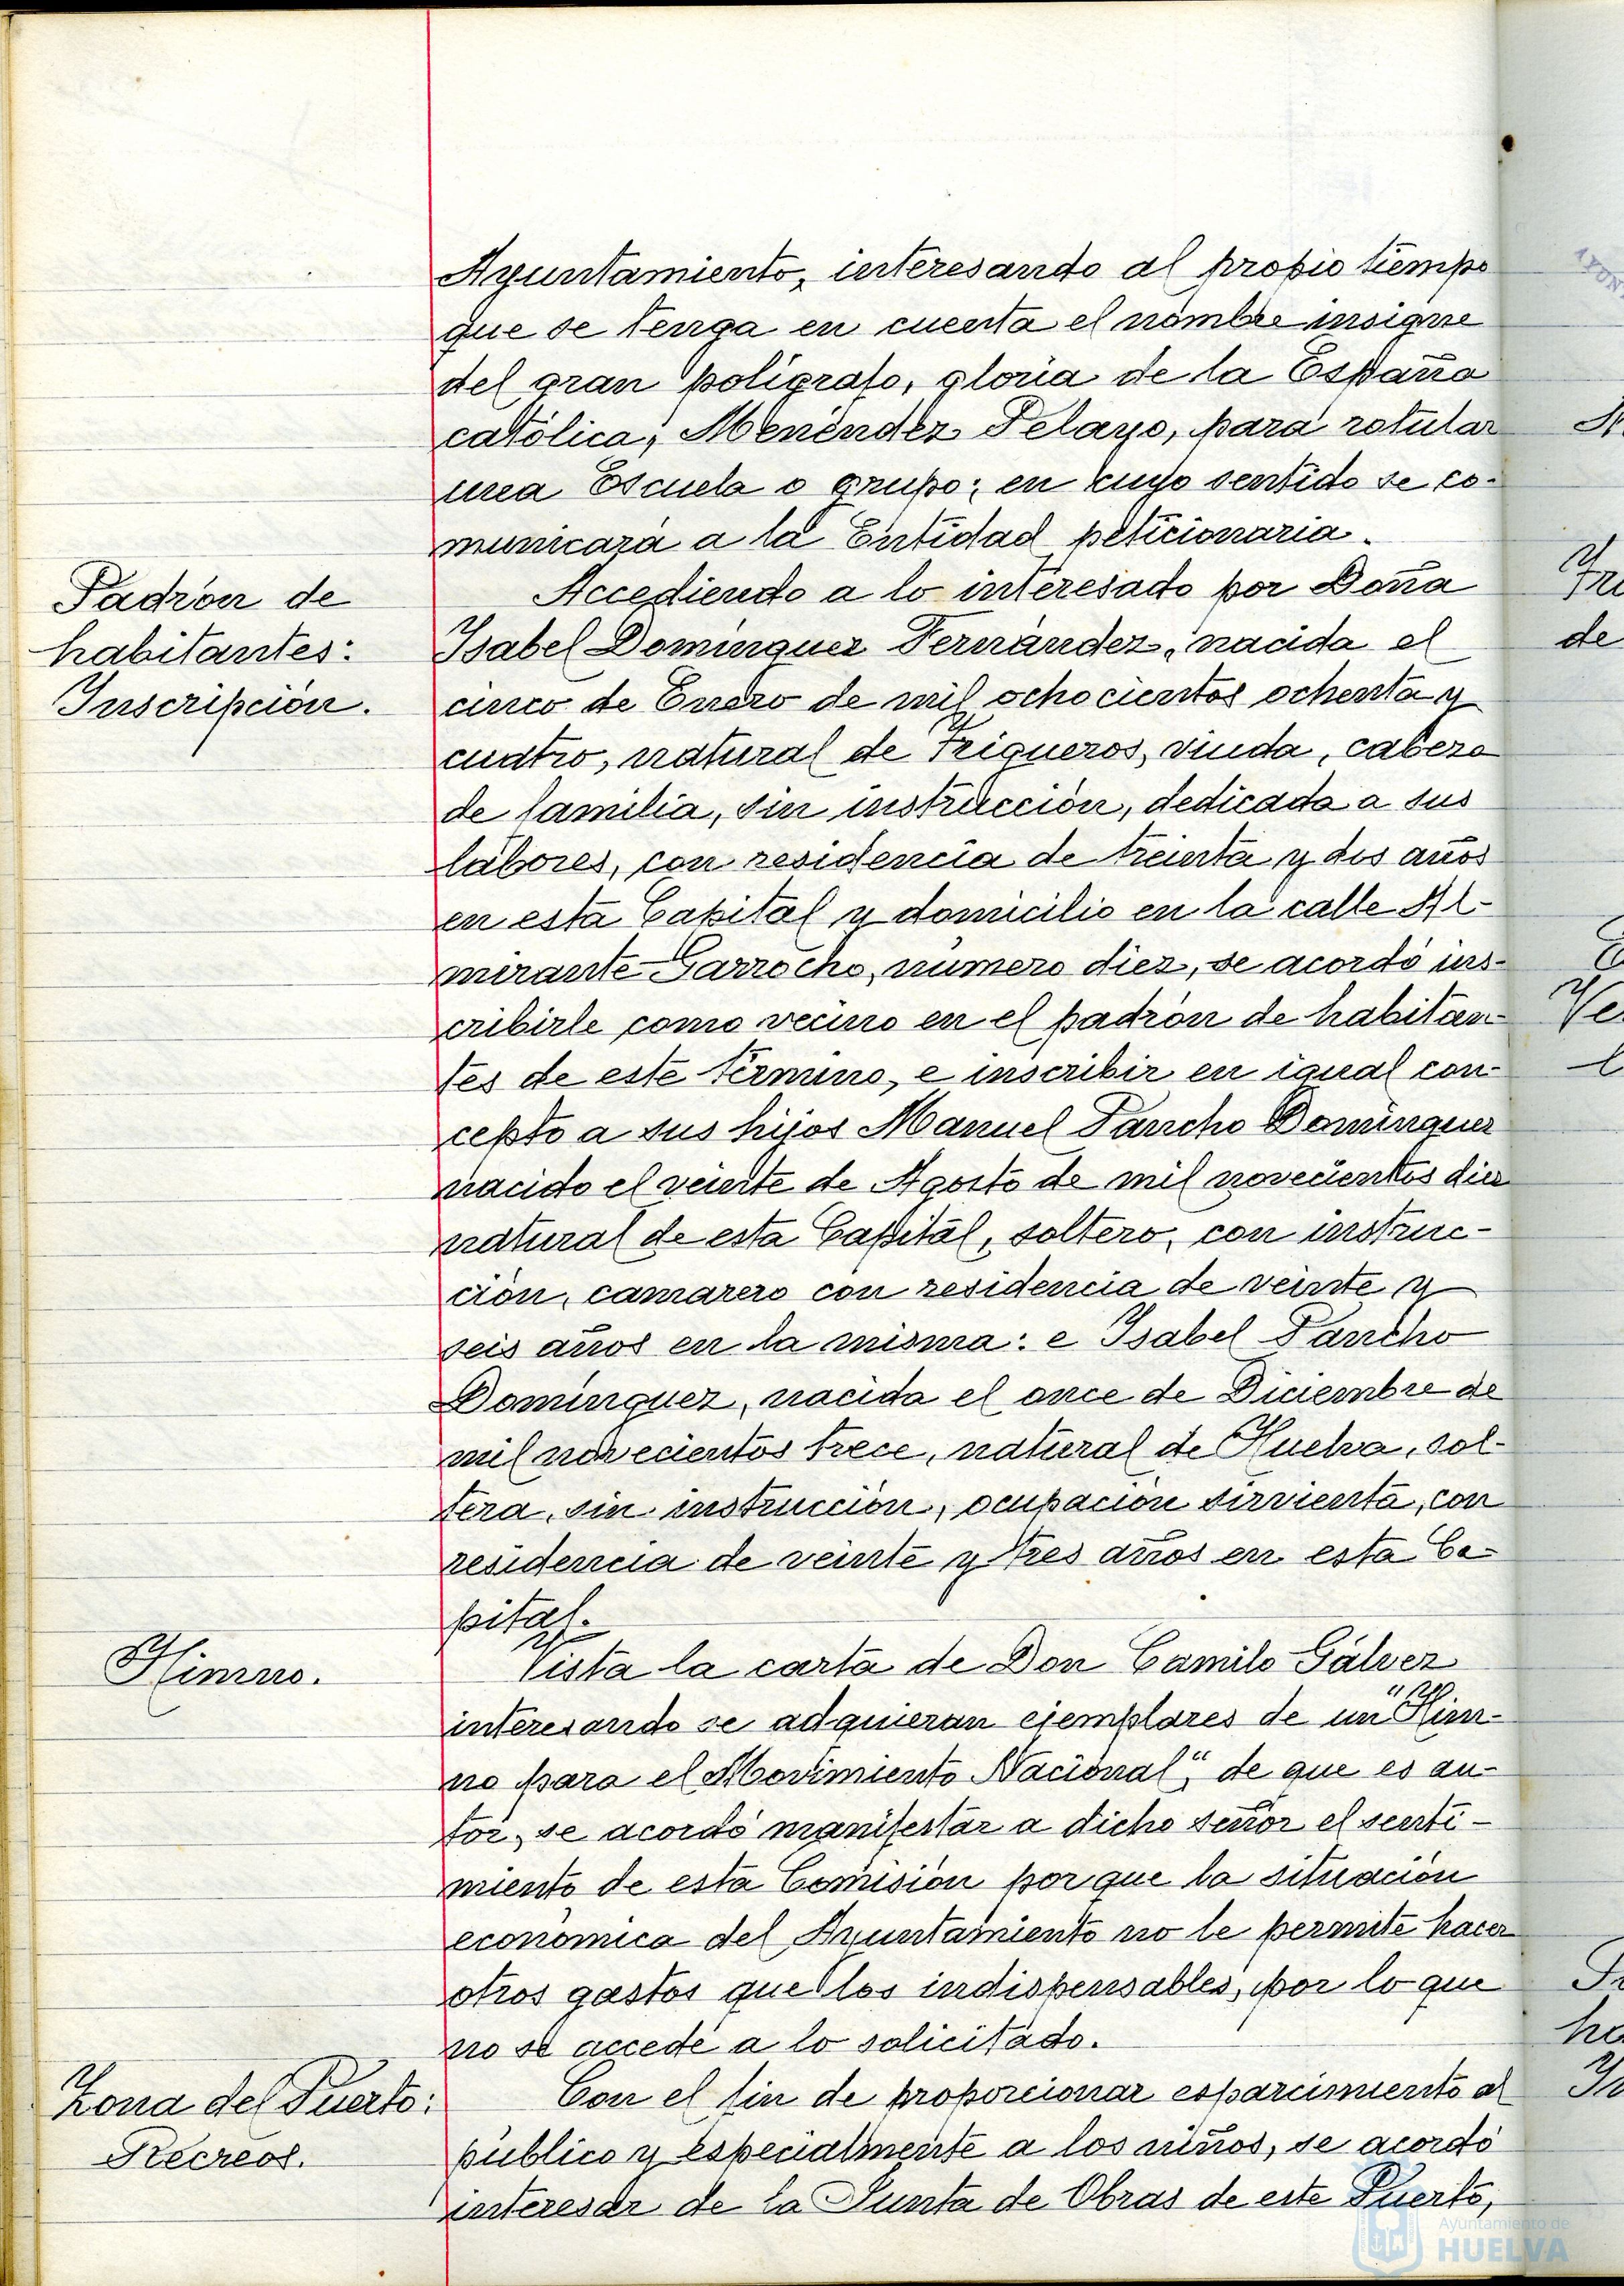 Ayuntamiento, interesando al propio tiempo
que se tenga en cuenta el nombre insigne
del gran polígrafo, gloria de la España
católica, Menéndez Pelayo, para rotular
una Escuela o grupo; en cuyo sentido se co-
municará a la Entidad peticionaria.
Padrón de
habitantes:
Inscripción.
Accediendo a lo interesado por Doña
Isabel Domínguez Fernández, nacida el
cinco de Enero de mil ochocientos ochenta y
cuatro, natural de Trigueros, viuda, cabeza
de familia, sin instrucción, dedicada a sus
labores, con residencia de treinta y dos años
en esta Capital y domicilio en la calle Al-
mirante Garrocho, número diez, se acordó ins-
cribirle como vecino en el padrón de habitan-
tes de este término, e inscribir en igual con-
cepto a sus hijos Manuel Pancho Domínguez
nacido el veinte de Agosto de mil novecientos diez
natural de esta Capital, soltero, con instruc-
ción, camarero con residencia de veinte y
seis años en la misma: e Isabel Pancho
Domínguez, nacida el once de Diciembre de
mil novecientos trece, natural de Huelva, sol-
tera, sin instrucción, ocupación sirvienta, con
residencia de veinte y tres años en esta Ca-
pital.
Himno.
Vista la carta de Don Camilo Gálvez
interesando se adquieran ejemplares de un "Him-
no para el Movimiento Nacional", de que es au-
tor, se acordó manifestar a dicho señor el senti-
miento de esta Comisión por que la situación
económica del Ayuntamiento no le permite hacer
otros gastos que los indispensables, por lo que
no se accede a lo solicitado.
Zona del Puerto:
Recreos.
Con el fin de proporcionar esparcimiento al
público y especialmente a los niños, se acordó
interesar de la Junta de Obras de este Puerto,
Ayuntamiento de
HUELVA